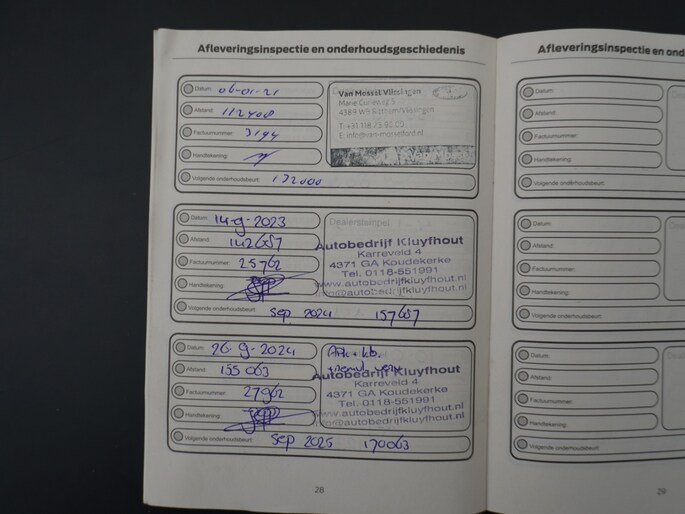 Afleveringsinspectie en onderhoudsgeschiedenis
Datum: 06-01-21
Afstand: 112408
Factuurnummer: 3194
Handtekening:
Volgende onderhoudsbeurt: 132000
Van Mossel Vlissingen
Marie Curieweg
T: +31 118
Datum: 14-9-2023
Afstand: 142657
Factuurnummer: 25762
Handtekening:
Volgende onderhoudsbeurt: Sep 2024 157657
Dealerstempel:
Autobedrijf Kluyfhout
Karreveld 4
4371 GA Koudekerke
Tel. 0118-551991
www.autobedrijfkluyfhout.nl
info@autobedrijfkluyfhout.nl
Datum: 26-9-2024
Afstand: 155063
Factuurnummer: 27962
Handtekening:
Volgende onderhoudsbeurt: Sep 2025 170063
Autobedrijf Kluyfhout
Karreveld 4
4371 GA Koudekerke
Tel. 0118-551991
www.autobedrijfkluyfhout.nl
info@autobedrijfkluyfhout.nl
28
Afleveringsinspectie en
Datum:
Afstand:
Factuurnummer:
Handtekening:
Volgende onderhoudsbeurt:
Datum:
Afstand:
Factuurnummer:
Handtekening:
Volgende onderhoudsbeurt:
Datum:
Afstand:
Factuurnummer:
Handtekening:
Volgende onderhoudsbeurt:
29